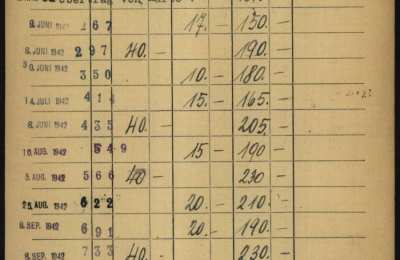 Übertrag von
9. JUNI 1942 267 17.- 150.-
8. JUNI 1942 297 40.- 190.-
30. JUNI 1942 350 10.- 180.-
14. JULI 1942 414 15.- 165.-
8. JUNI 1942 435 40.- 205.-
10. AUG. 1942 549 15- 190-
5. AUG. 1942 566 40- 230-
25. AUG. 1942 622 20.- 210.-
8. SEP. 1942 691 20.- 190.-
8. SEP. 1942 733 40.- 230.-